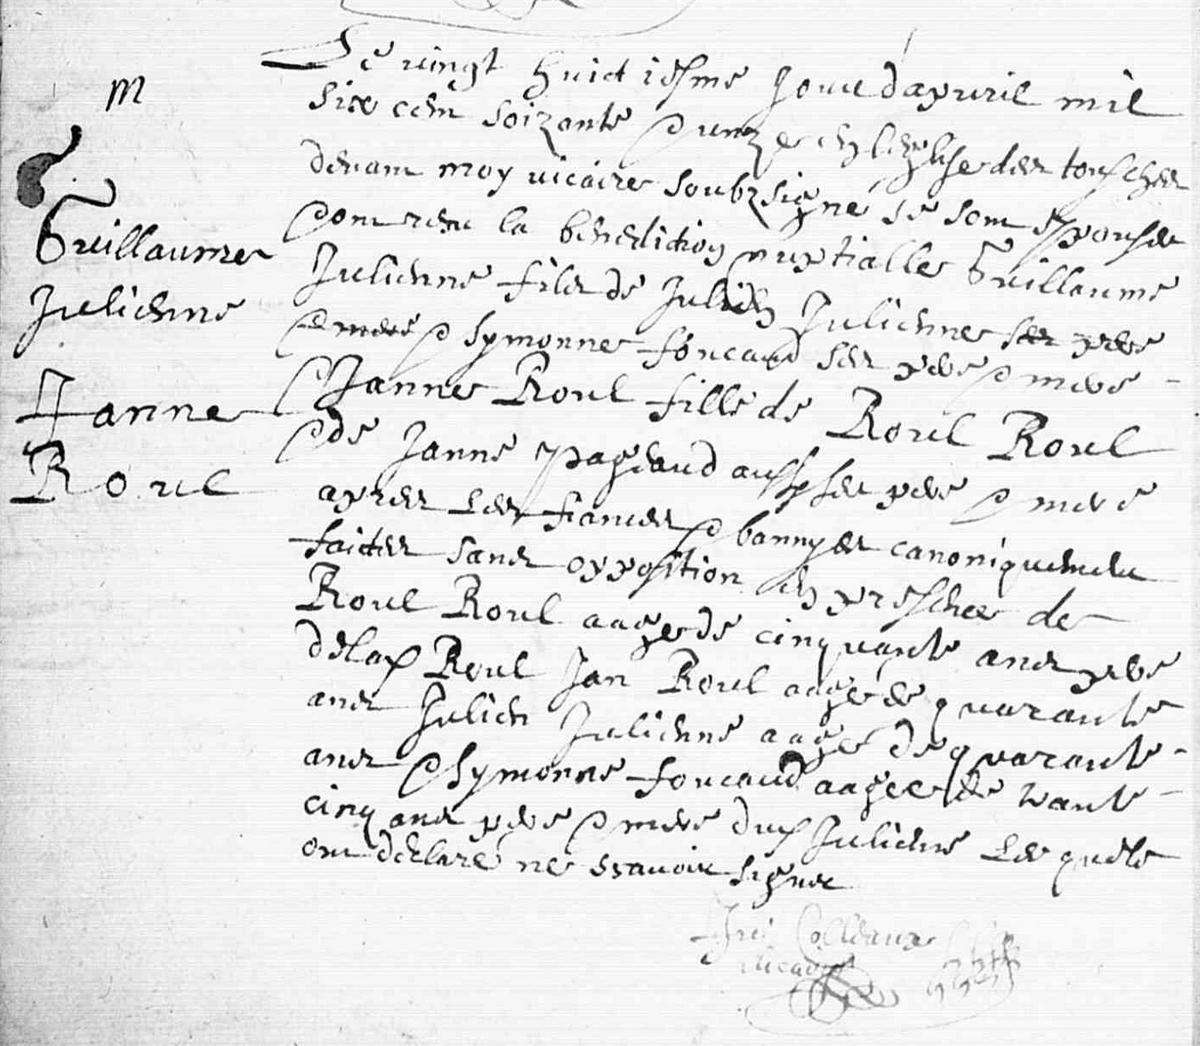 m
Guillaume
Julienne
Janne
Roul
Le vingt huict iesme Jour dapvril mil
six cem soixante & unze en leglise des tousches
devant moy vicaire soubzsigné se sont espousés
& ont receu la benediction nuptialle Guillaume
Julienne fils de Julien Julienne ses pere
& mere & Symonne foucaud ses pere & mere
& Janne Roul fille de Roul Roul
& de Janne pageaud aussy ses pere & mere
apres les fiances & bannyes canoniquement
faictes sans opposition en presence de
Roul Roul aagé de cinquante ans pere
de lad Roul Jan Roul aagé de quarante
ans Julien Julienne aagé de quarante
ans & Symonne foucaud aagee de
cinq ans pere & mere dud Julienne lesquels
ont declaré ne scavoir signer
Colleaux
vicaire